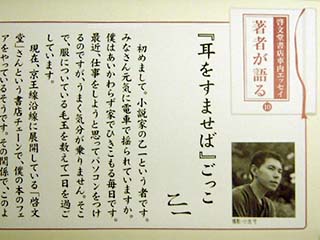 啓文堂書店車内エッセイ
著者が語る
10
『耳をすませば』ごっこ
乙一
初めまして。小説家の乙一という者です。
みなさん元気に電車で揺られていますか。
僕はあいかわらず家でひきこもる毎日です。
最近、仕事をしようと思ってパソコンをつけ
るのですが、うまく気分が乗りません。そこ
で、服についている毛玉を数えて一日を過ご
しています。
現在、京王線沿線に展開している「啓文
堂」さんという書店チェーンで、僕の本のフェ
アをやっているそうです。その関係で、このよ